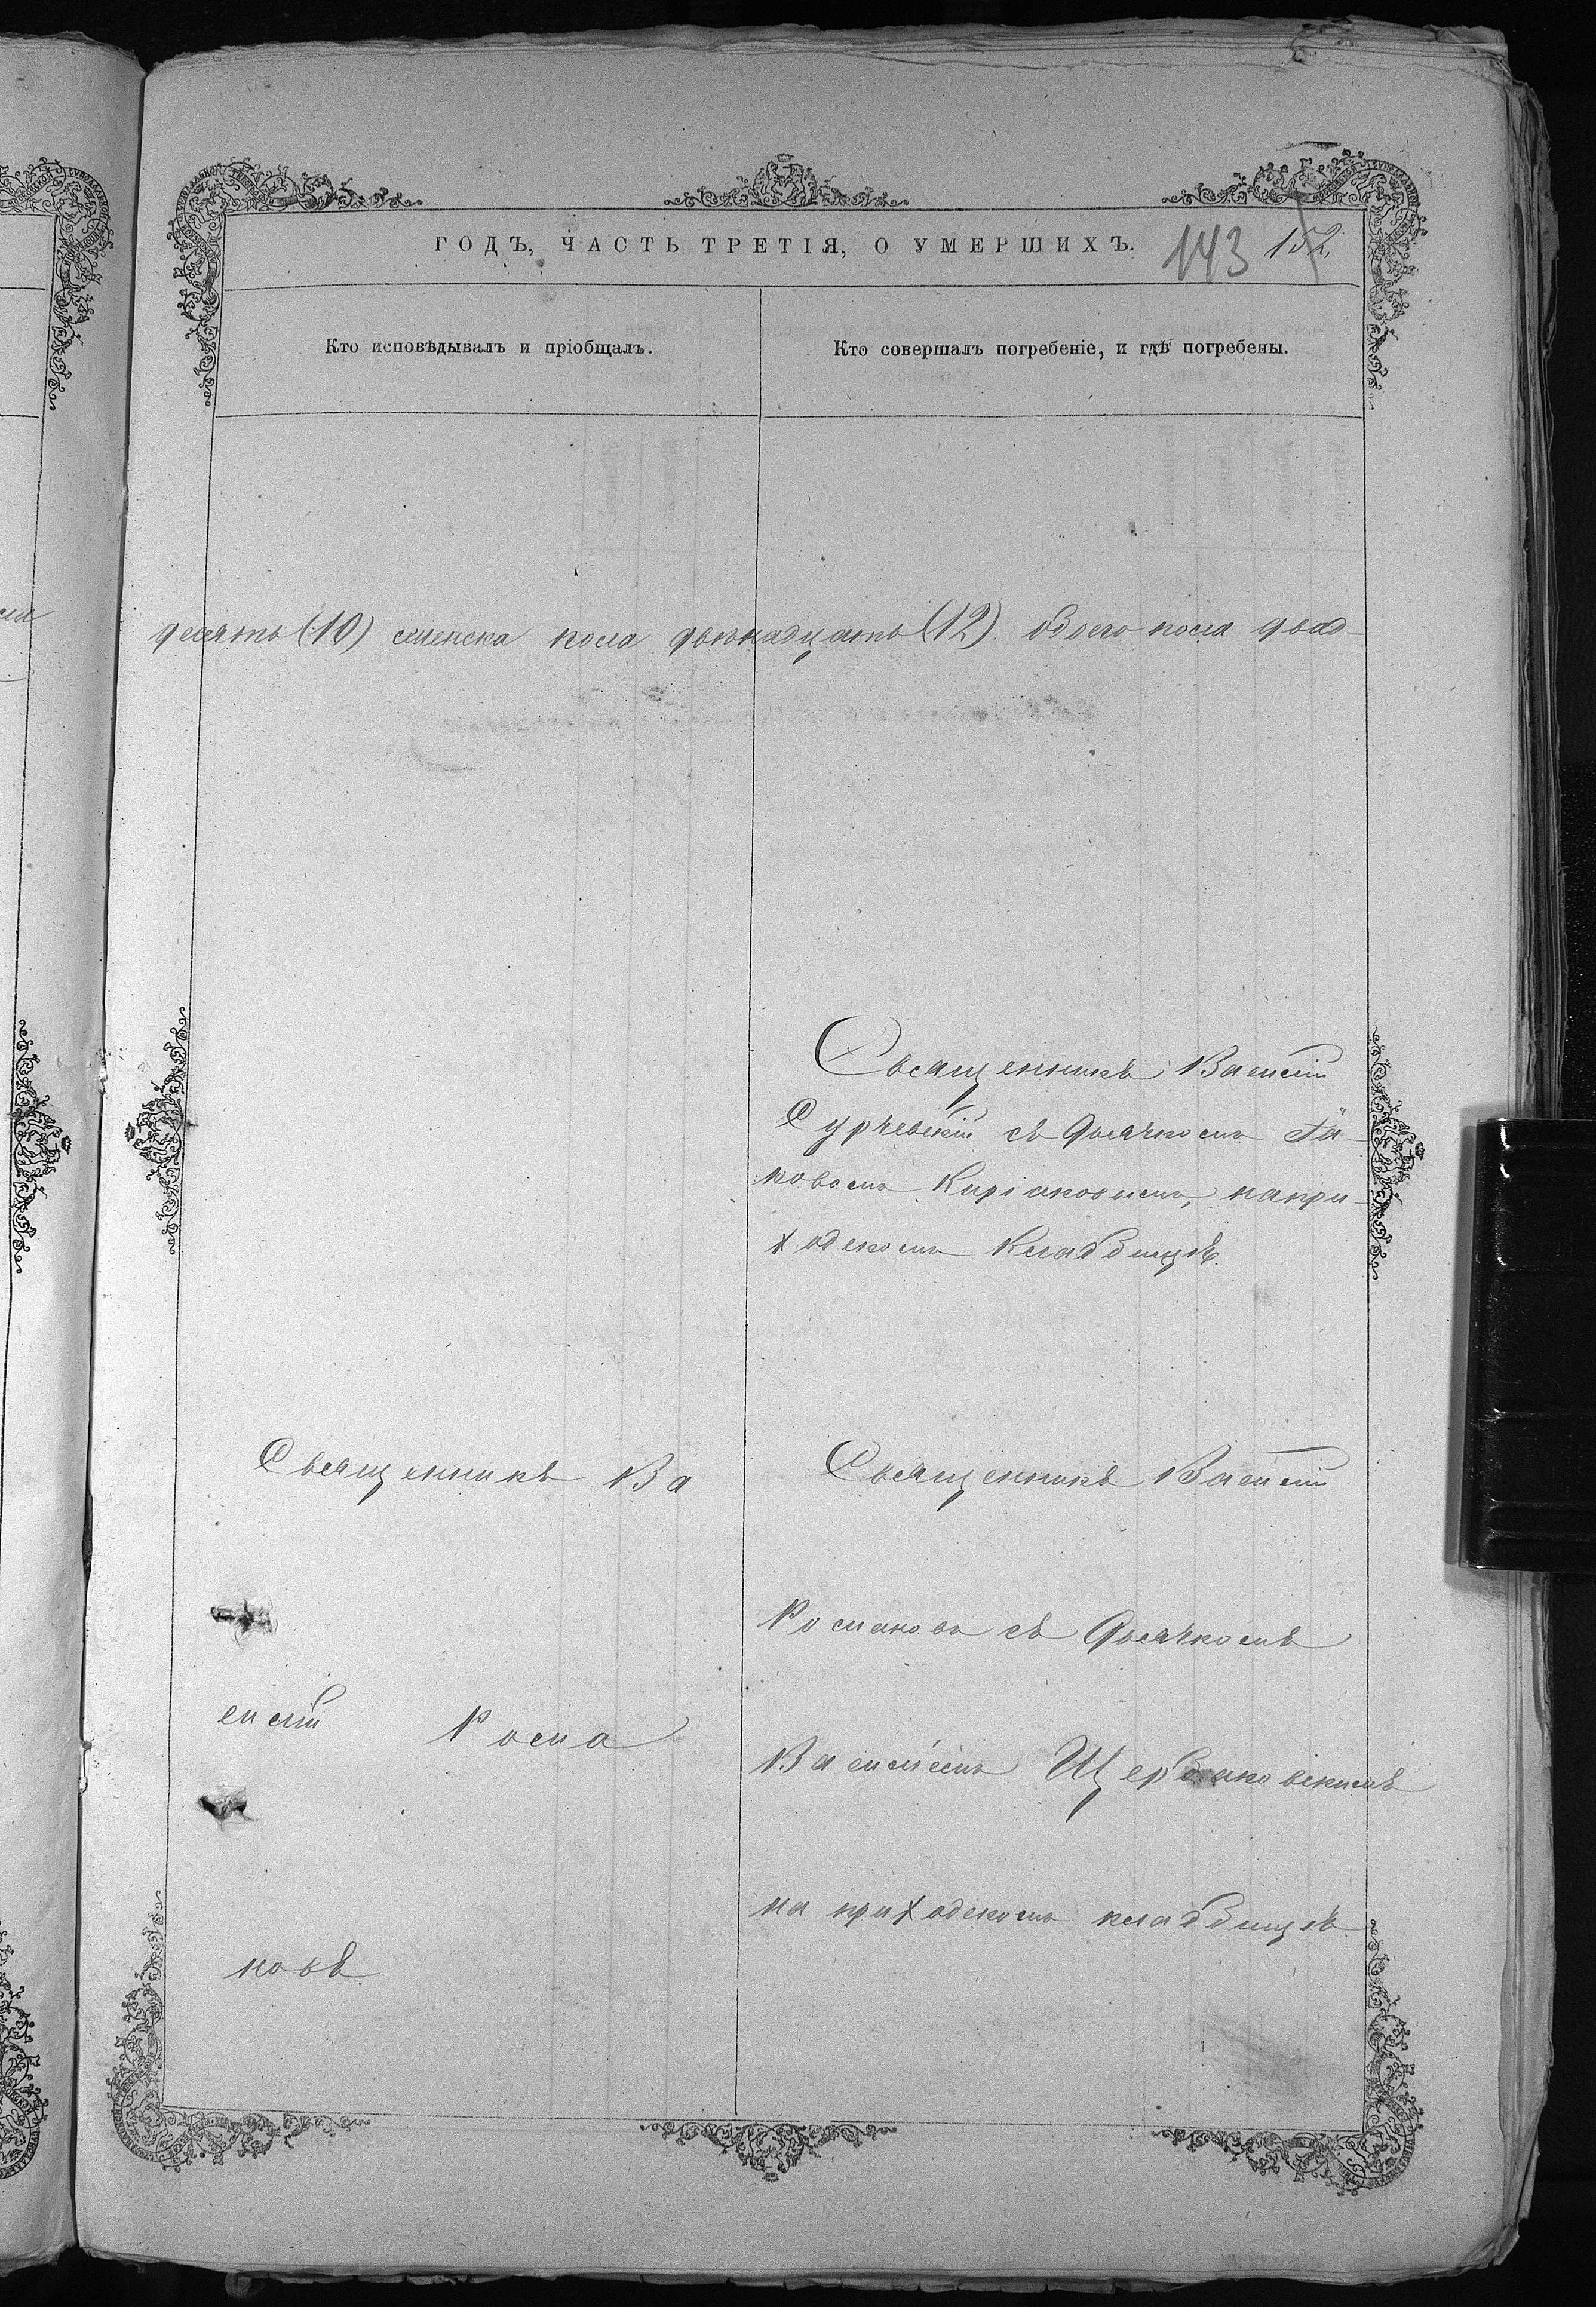 ГОДЪ, ЧАСТЬ ТРЕТІЯ, О УМЕРШИХЪ. 143 152.
Кто исповѣдывалъ и пріобщалъ.
Кто совершалъ погребеніе, и гдѣ погребены.
десять (10) женска пола двѣнадцать (12). обоего пола двад-
Священникъ Василій
Сурчевскій съ дьячкомъ Іа-
ковомъ Киріаковымъ, на при-
ходскомъ кладбищѣ.
Священникъ Ва
силій Рома
новъ
Священникъ Василій
Романовъ съ дьячкомъ
Василіемъ Щербаковскимъ
на приходскомъ кладбищѣ